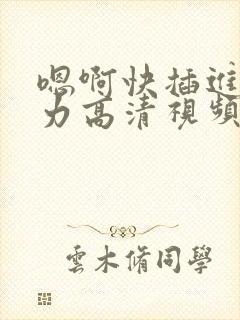 嗯啊快插進
力高清視頻
雲木脩同學